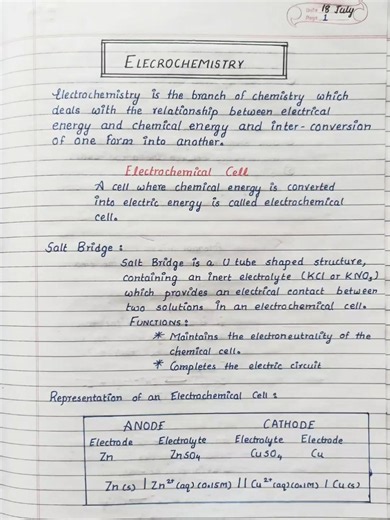 Date 18 July
Page 1
ELECROCHEMISTRY
Electrochemistry is the branch of chemistry which
deals with the relationship between electrical
energy and chemical energy and inter-conversion
of one form into another.
Electrochemical Cell
A cell where chemical energy is converted
into electric energy is called electrochemical
cell.
Salt Bridge :
Salt Bridge is a U tube shaped structure,
containing an inert electrolyte (KCl or KNO₃)
which provides an electrical contact between
two solutions in an electrochemical cell.
FUNCTIONS :
* Maintains the electroneutrality of the
chemical cell.
* Completes the electric circuit
Representation of an Electrochemical Cell :
ANODE CATHODE
Electrode Electrolyte Electrolyte Electrode
Zn ZnSO₄ CuSO₄ Cu
Zn(s) | Zn²⁺(aq)(0.15M) || Cu²⁺(aq)(0.1M) | Cu(s)